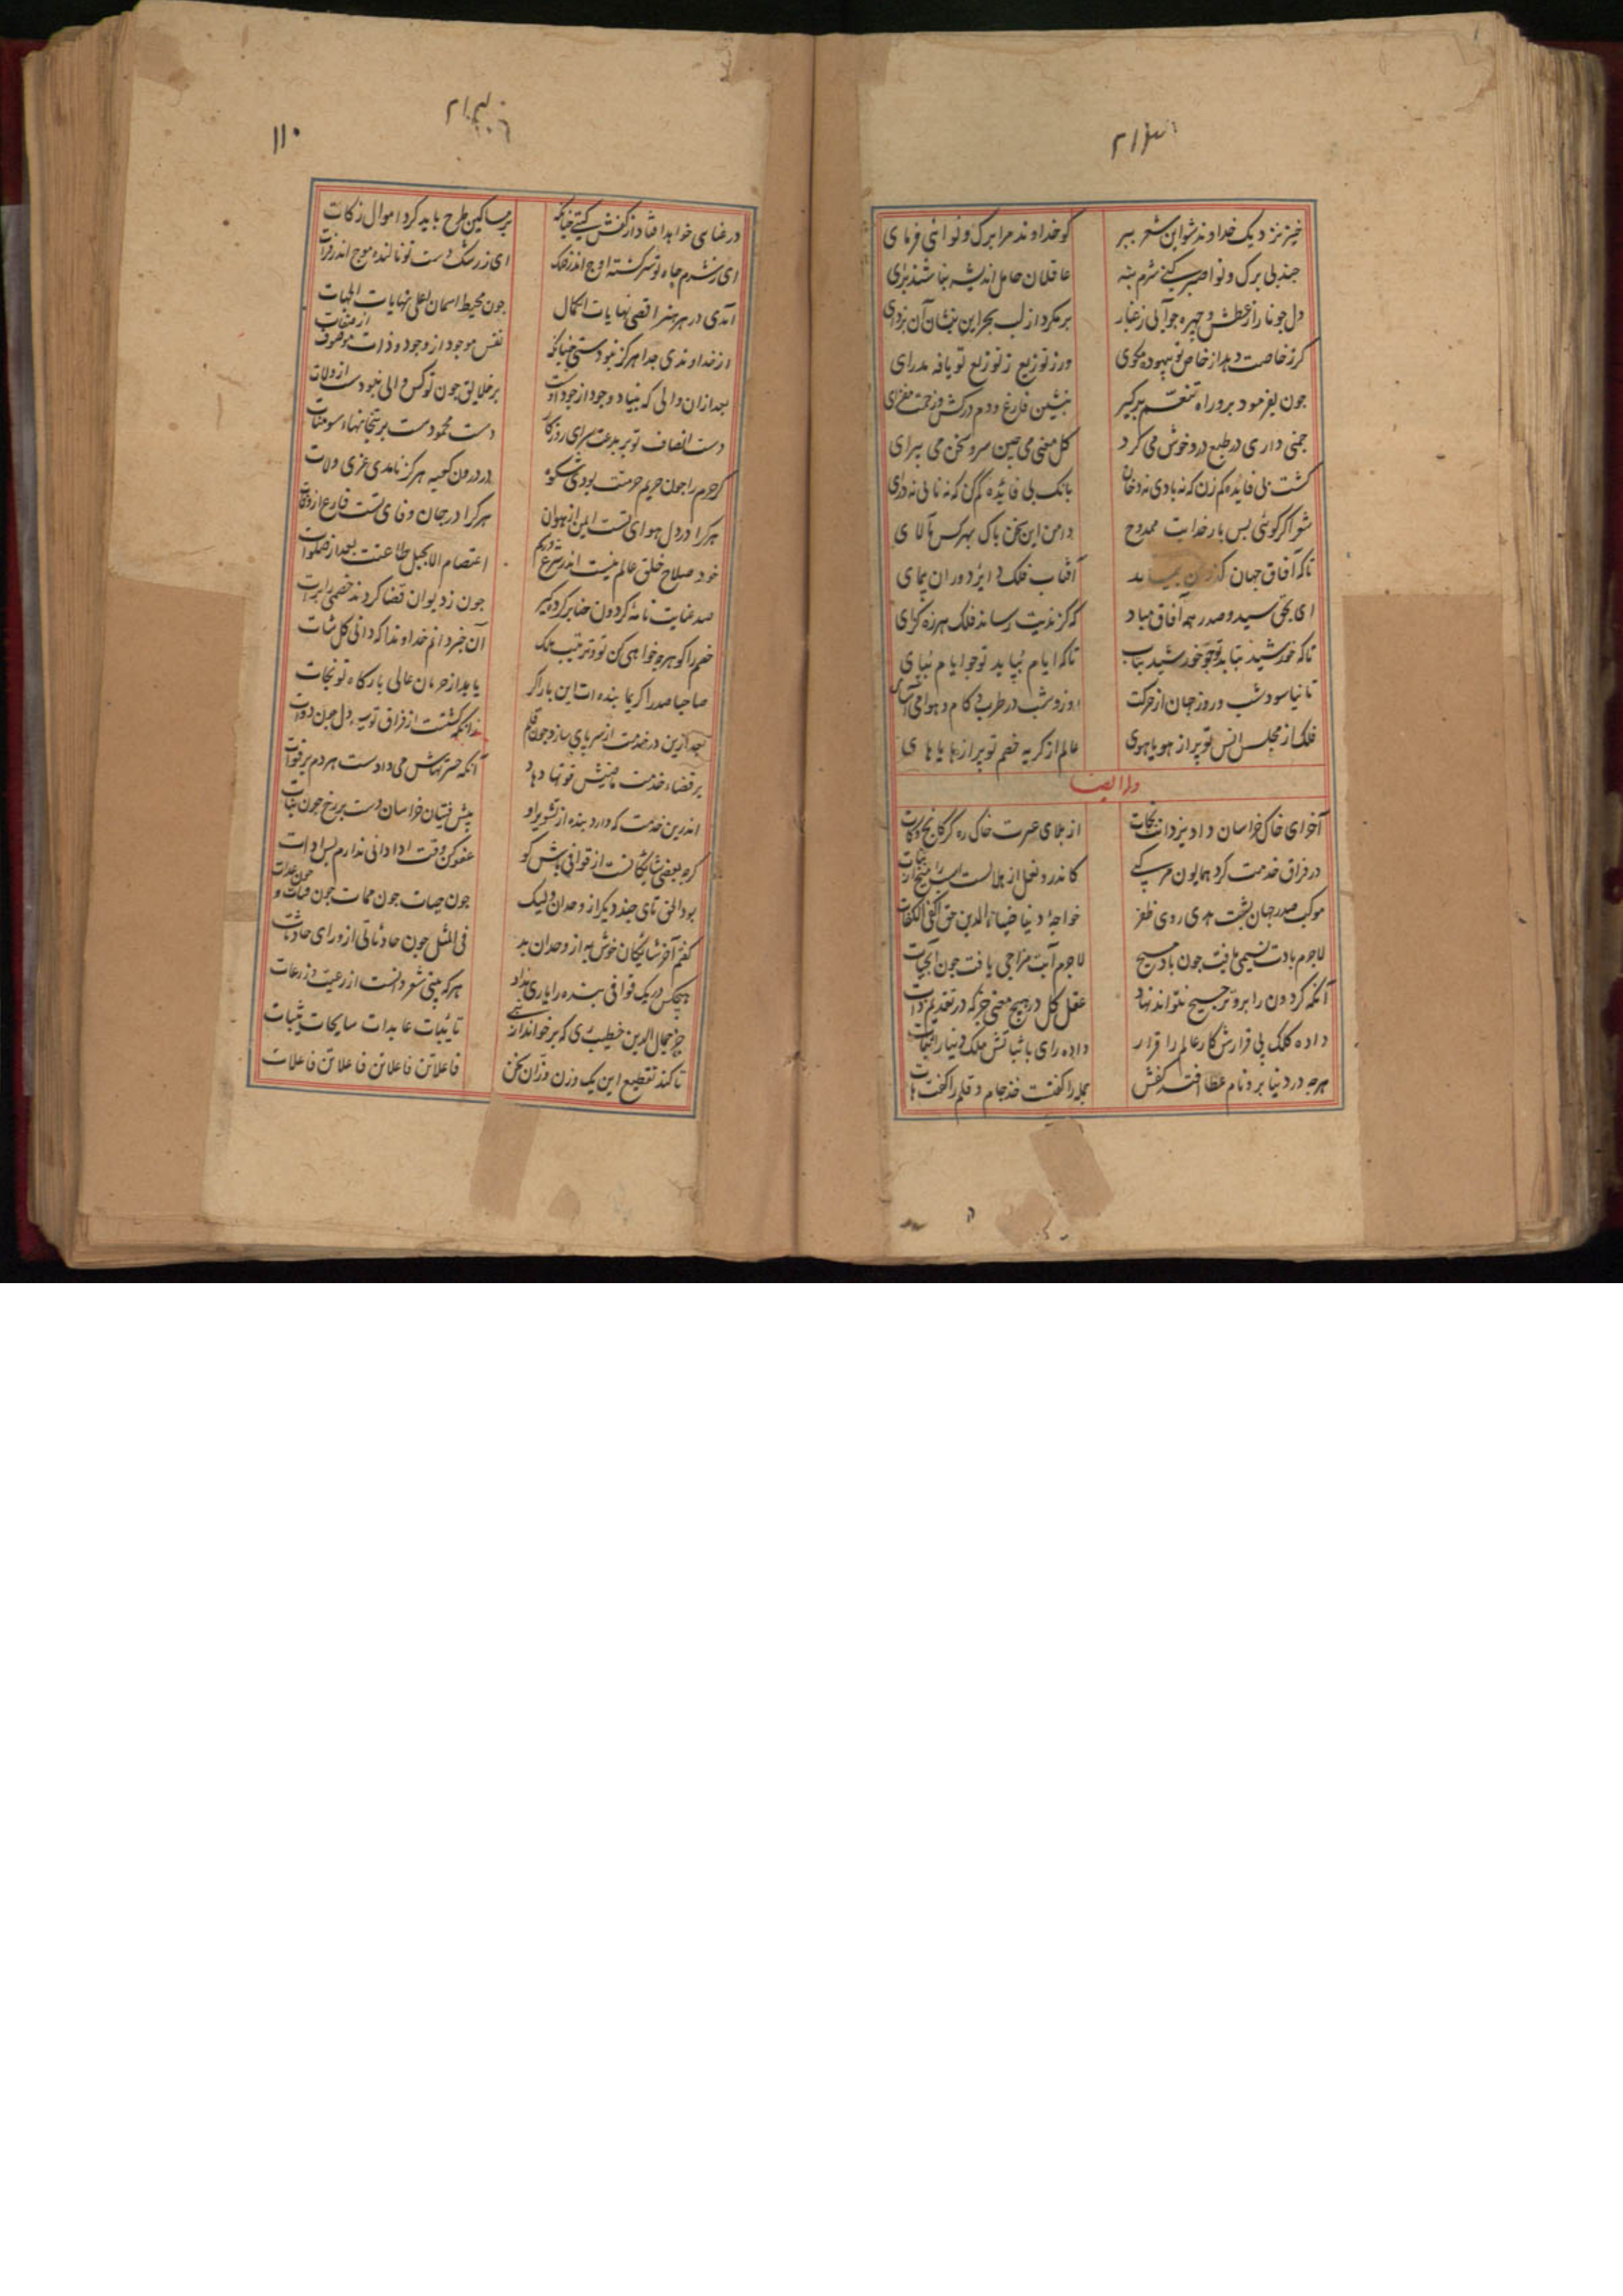 خیز نزدیک خداوند شو این شعر ببر
کو خداوند مرا برک و نوائی فرمای
جند بی برک و نوا صبر کنم شرم بنه
عاقلان حامل اندیشه نباشند برای
دل جو نار از عطش و جهره جو آبی ز غبار
بر مکرد از لب بحر این بنشان آن بزدای
کرز خاصت دهد از خاص تو بیهوده مکوی
ورز توزیع ز توزیع تو یافه مدرای
جون بفرمود برو راه تنعم برکیر
بنشین فارغ و دم درکش و زحمت مفزای
جمنی داری در طبع درو خوش می کرد
کل معنی می جین سرو سخن می پیرای
کشت بی فایده کم زن که نه بادی نه دخان
بانک بی فایده کم کن که نه نائی نه درای
شعر اکر کوئی بس بار خدایت ممدوح
دامن این سخن پاک بهر کس مالای
تا که آفاق جهان کذران بیماید
آفتاب فلک دایر دوران پیمای
ای بحق سید و صدر همه آفاق مباد
که کزندیت رساند فلک هرزه کرای
تا که خورشید بتابد تو جو خورشید بتاب
تا که ایام بپاید تو جو ایام بپای
تا نیاسود شب و روز جهان از حرکت
روز و شب در طرب و کام و هوا می آسای
فلک از مجلس انس تو پر از هویاهوی
عالم از کریه خصم تو پر از هایاهای
وله ایضا
آخر ای خاک خراسان داد یزدانت نجات
از بلای غیرت خاک ره کرکانج و کات
در فراق خدمت کرد همایون مرکبی
کاندرو نعل از هلالست
موکب صدر جهان پشت هدی روی ظفر
خواجه دنیا ضیاء الدین حق اکفی الکفات
لاجرم بادت نسیمی یافت جون باد مسیح
لاجرم آبت مزاجی یافت جون آبحیات
آنکه کردون را برو ترجیح نتواند نهاد
عقل کل در هیج معنی جز که در تقدیم ذات
داده کلک بی قرارش کار عالم را قرار
داده رای با ثباتش ملک دنیا را ثبات
هرجه در دنیا برو نام عطا افتد کفش
جمله را کفتست خذ جام و قلم را کفت هات
۱۱۰
در غنای خواهد افتاد از کفش کیتی جنانکه
بر مساکین طرح باید کرد اموال زکات
ای ز شرم جاه تو سرکشته اوج اندر فلک
ای ز رشک دست تو نالنده موج اندر فرات
آمدی در هر هنر اقصی نهایات الکمال
جون محیط اسمان اعلی نهایات الجهات
از خداوندی جدا هرکز نبودستی جنانکه
نفس موجود از وجود و ذات موصوف از صفات
بعد ازان والی که بنیاد وجود از جود اوست
بر خلایق جون تو کس والی نبودست از ولات
دست انصاف تو بر بدعت سرای روزکار
دست محمودست بر بتخانهای سومنات
کر حرم را جون حریم حرمتت بودی شکوه
در درون کعبه هرکز نامدی عزی و لات
هر که را در دل هوای تست ایمن از هوان
هر کرا در جان وفای تست فارغ از وفات
خود صلاح خلق عالم نیست اندر شرع و رسم
اعتصام الا بحبل طاعتت بعد از صلوات
صد عنایت نامه کردون حنابر کرده کیر
جون ز دیوان قضا کردند خصمی را برات
خصم را کو هرجه خواهی کن تو و ترتیب ملک
آن خبر دانم خداوندا که دانی کل شات
صاحبا صدرا کریما بنده ات این بار اکر
یابد از حرمان عالی بارکاه تو نجات
بعد ازین در خدمتت از سر پای سازد جون قلم
زانکه کشتست از فراق تو سیه دل جون دوات
بر قضاء خدمت ماضیش قوتها دهاد
آنکه حسرتهاش می دادست هر دم بر فوات
اندرین خدمت که دارد بنده از تشویر او
پیش فتیان خراسان دست بر رخ جون بنات
کرجه بعضی شایکانست از قوافی باش کو
عفو کن وقت ادا دانی ندارم بس ادات
بود الحق تای جند دیکر از وحدان ولیک
جون حیات جون ممات جون قنات و جون عدات
کفتم آخر شایکان خوش به از وحدان بد
فی المثل جون حادثاتی از ورای حادثات
هیجکس در یک قوافی بنده را یاری نداد
هر که بیتی شعر دانست از رعیت وز رعات
جز جمال الدین خطیب ری که بر خواند از نبی
تایبات عابدات سایحات ثیبات
تا کند تقطیع این یک وزن وزان سخن
فاعلاتن فاعلاتن فاعلاتن فاعلات